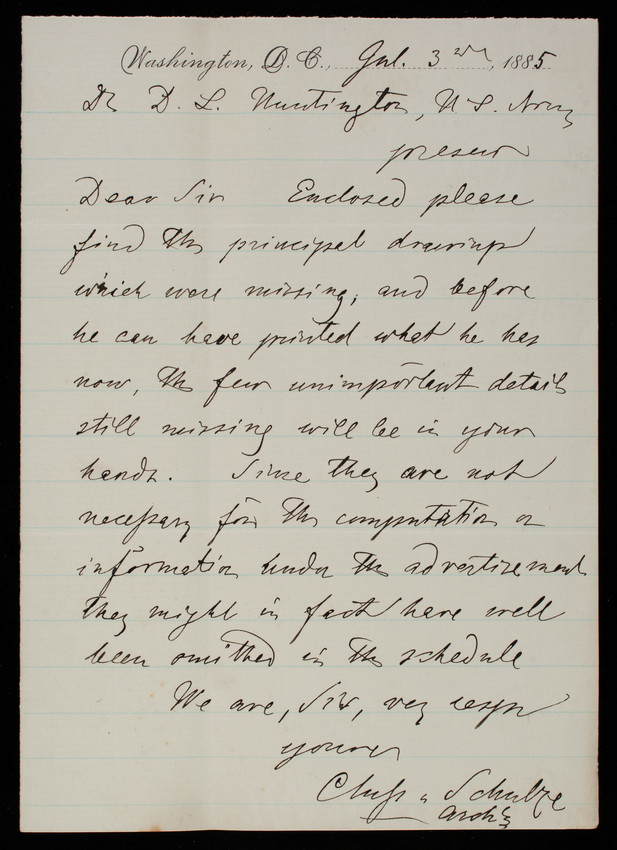 Washington, D.C., Jul. 3rd, 1885
Dr D. L. Huntington, U S. Army
present
Dear Sir Enclosed please
find the principal drawings
which were missing, and before
he can have printed what he has
now, the few unimportant details
still missing will be in your
hands. Since they are not
necessary for the computation or
information under the advertisement
they might in fact have well
been omitted in the schedule
We are, Sir, very resp
yours
Cluss & Schulze
Archts